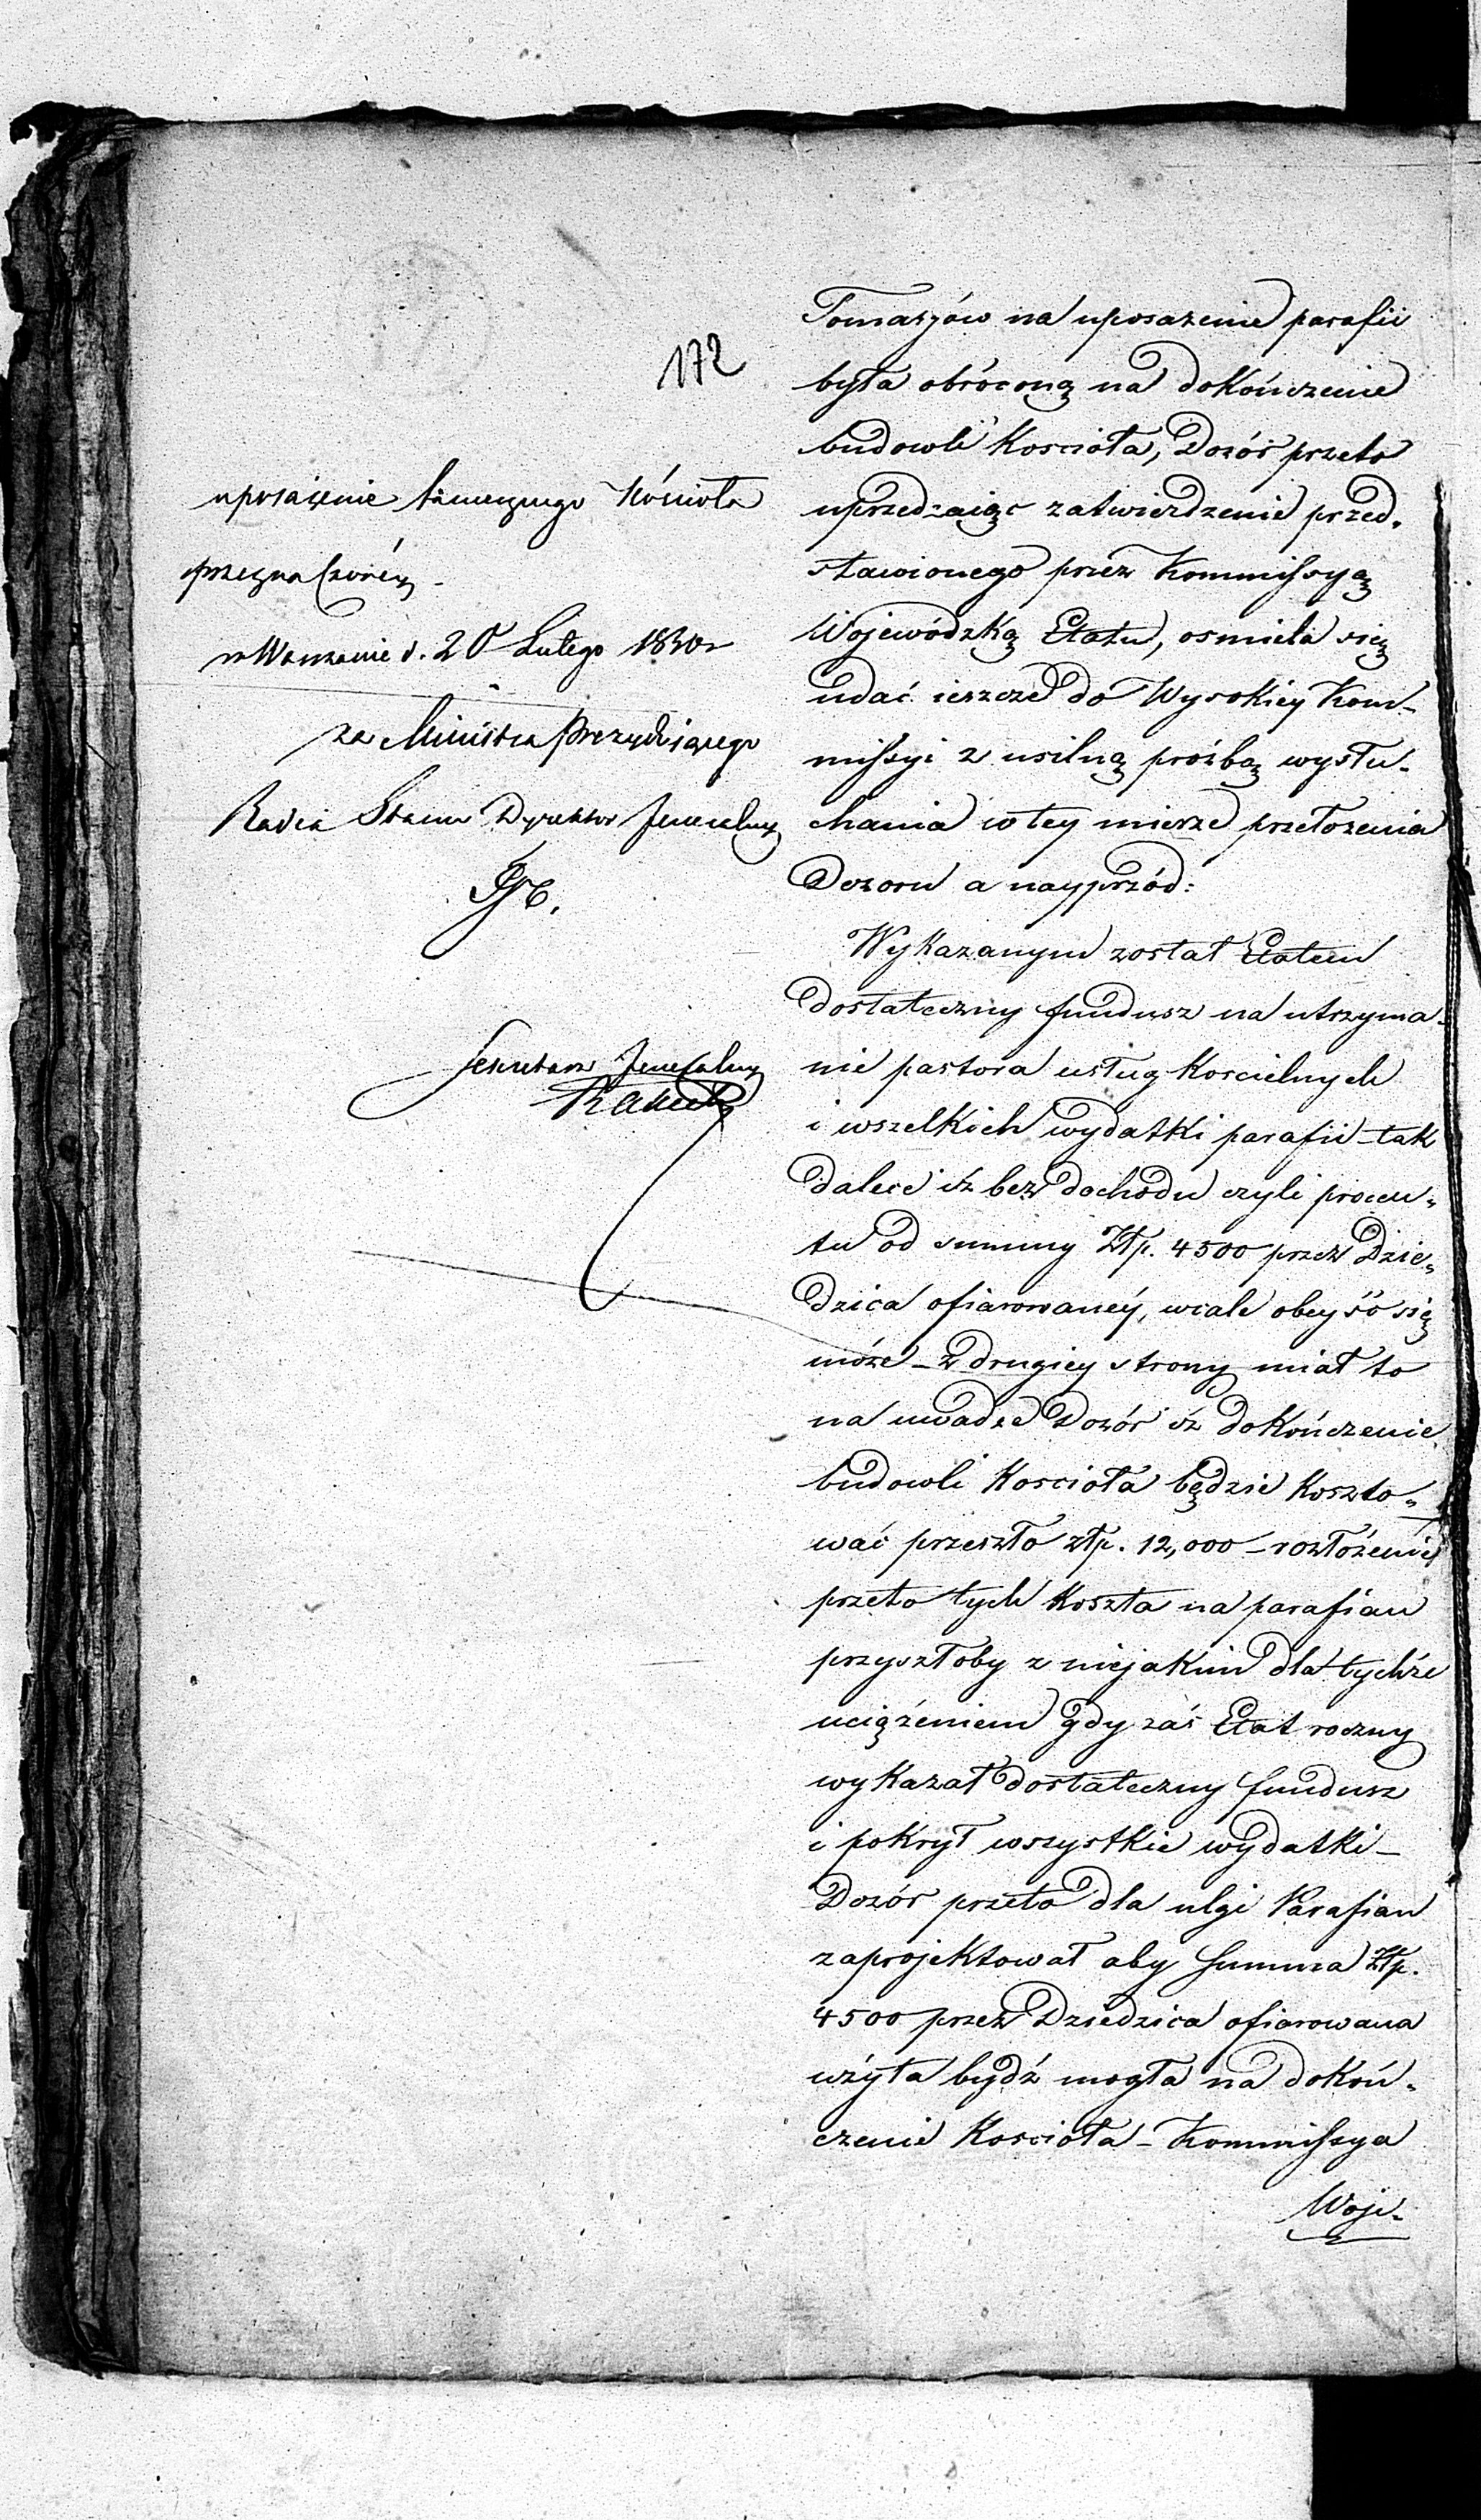 172
uposażenie tamecznego Kościoła
przeznaczoney.
w Warszawie d. 20 Lutego 1830 r
za Ministra Prezydującego
Radca Stanu Dyrektor Jeneralny
Sekretarz Jeneralny
Tomaszów na uposażenie parafii
była obróconą na dokończenie
budowli Kościoła, Dozór przeto
uprzedzaiąc zatwierdzenie przed„
stawionego przez Kommissyą
Wojewódzką Etatu, osmiela się
udać ieszcze do Wysokiey Kom-
missyi z usilną próźbą wysłu-
chania w tey mierze przełożenia
Dozoru a nayprzód:
Wykazanym został Etatem
dostateczny fundusz na utrzyma-
nie pastora usług Koscielnych
i wszelkich wydatki parafii – tak
dalece iż bez dochodu czyli procen„
tu od summy Złp. 4500 przez Dzie„
dzica ofiarowaney, wcale obeyść się
może – z drugiey strony miał to
na uwadze Dozór iż dokończenie
budowli Koscioła będzie koszto„
wać przeszło złp. 12,000 – rozłożenie
przeto tych koszta na parafian
przyszłoby z niejakim dla tychże
uciążeniem gdy zaś Etat roczny
wykazał dostateczny fundusz
i pokrył wszystkie wydatki –
Dozór przeto dla ulgi Parafian
zaprojektował aby Summa Złp.
4500 przez Dziedzica ofiarowana
użyta bydź mogła na dokoń„
czenie Koscioła – Kommissya
Woje„